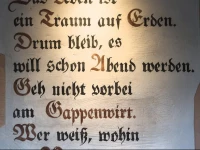 Das Leben ist
ein Traum auf Erden.
Drum bleib, es
will schon Abend werden.
Geh nicht vorbei
am Gappenwirt.
Wer weiß, wohin